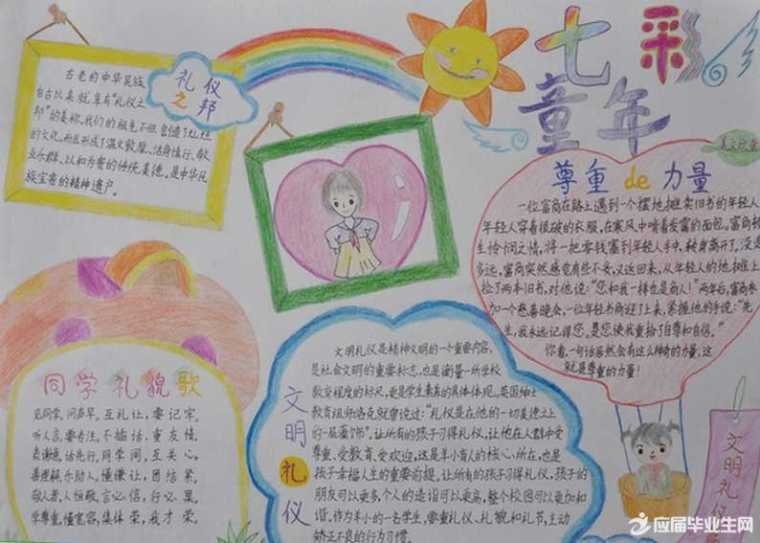 七彩
童年
礼仪
之邦
古老的中华民族
自古以来就享有“礼仪之
邦”的美称。我们的祖先不但创造了灿烂
的文化,而且形成了温文敦厚、洁身慎行、敬
业乐群、以和为贵的传统美德,是中华民
族宝贵的精神遗产。
美文欣赏
尊重de力量
一位富商在路上遇到一个摆地摊卖旧书的年轻人
年轻人穿着很破的衣服,在寒风中啃着发霉的面包。富商顿
生怜悯之情,将一把零钱塞到年轻人手中,转身离开了,没走
多远,富商突然感觉有些不妥,又返回来,从年轻人的地摊上
捡了两本旧书,对他说:“您和我一样也是商人!”两年后,富商参
加一个慈善晚会,一位年轻书商迎了上来,紧握他的手说:“先
生,我永远记得您,是您使我重拾了自尊和自信。”
你看,一句话居然会有这么神奇的力量,这
就是尊重的力量!
同学礼貌歌
见同学,问声早,互礼让,要记牢,
听人言,要专注,不插话,重友情,
表谢意,话先行,同学间,互关心,
喜援助,乐助人,懂谦让,团结紧,
敬人者,人恒敬,言必信,行必果,
学尊重,懂宽容,集体荣,我才荣。
文明礼仪
文明礼仪是精神文明的一个重要内容,
是社会文明的重要标志,也是衡量一所学校
教育程度的标尺,更是学生素养的具体体现。英国绅士
教育祖师洛克就曾说过:“礼仪是在他的一切美德之上
的一层藻饰”。让所有的孩子习得礼仪,让他在人群中受
尊重、受教育、受欢迎,这是羊小育人的核心,所在,也是
孩子幸福人生的重要前提,让所有的孩子习得礼仪,孩子的
朋友可以更多,个人的造诣可以更高,整个校园可以更加和
谐。作为羊小的一名学生,要重礼仪、礼貌和礼节,主动
矫正不良的行为习惯。
文明礼仪
应届毕业生网